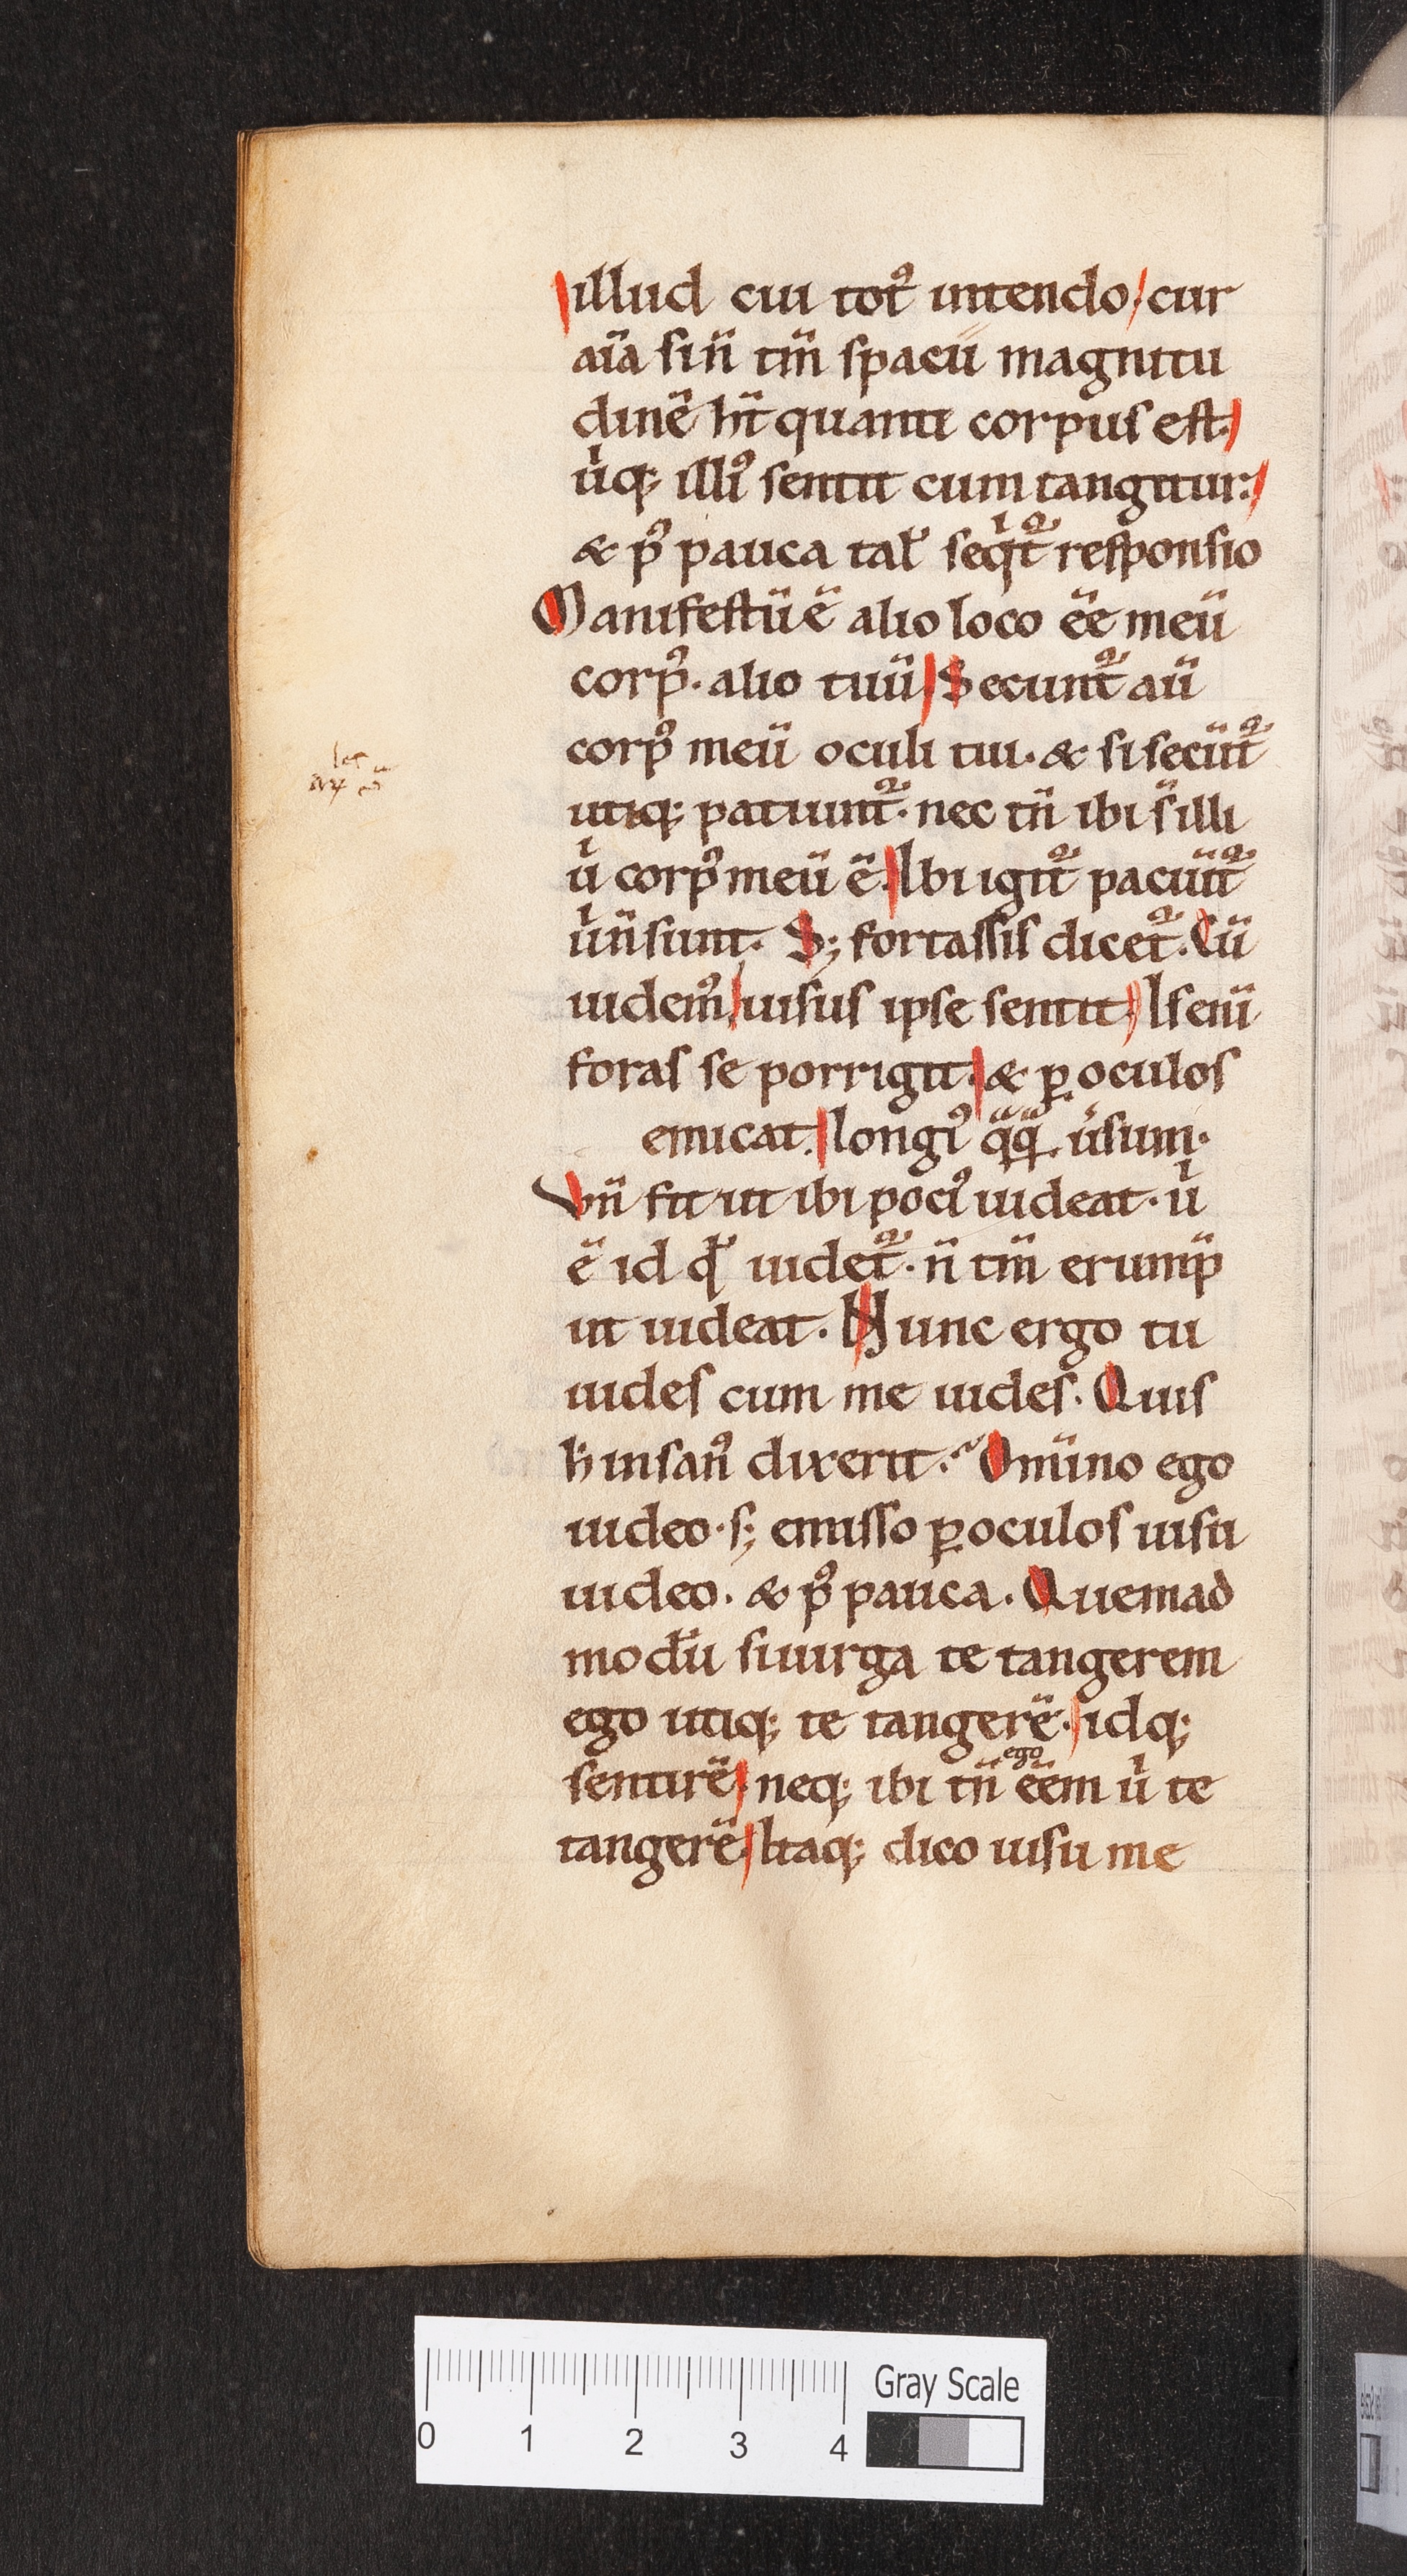 illud cui totꝰ intendo. cur
aı̄a si n̄ tm̄ spaciı̄ magnitu
dinē ht̄ quanti corpus est.
uͥq; illiꝰ sentit cum tangitur:
& pꝰ pauca tal' seqͥt᷑ responsio
Manifestū ē alio loco ēe meū
corpꝰ. alio tuū. Secunt᷑ aū
corpꝰ meū oculi tui. & si secūt᷑
utiq; patiunt᷑. nec tn̄ ibi s̄ illi
uͥ corpꝰ meū ē. Ibi igit᷑ paciūt᷑
uͥ n̄ sunt. S; fortassis dicet᷑. Cū
uidemꝰ. uisus ipse sentit. Is eni̅
foras se porrigit. & ꝑ oculos
emicat. longiꝰ qͣqͣ uͤsum.
Vn̄ fit ut ibi pociꝰ uideat. uͥ
ē id qd̓ uidet᷑. n̄ tm̄ erump̄
ut uideat. Nunc ergo tu
uides cum me uides. Quis
h̓ insanꝰ dixerit. Omīno ego
uideo. s; emisso ꝑ oculos uisu
uideo. & pꝰ pauca. Quemad
modū si uirga te tangerem
ego utiq; te tangerē. idq;
sentirē. neq; ibi tn̄ ego ēēm uͥ te
tangerē. Itaq; dico uisu me
0 1 2 3 4
Gray Scale